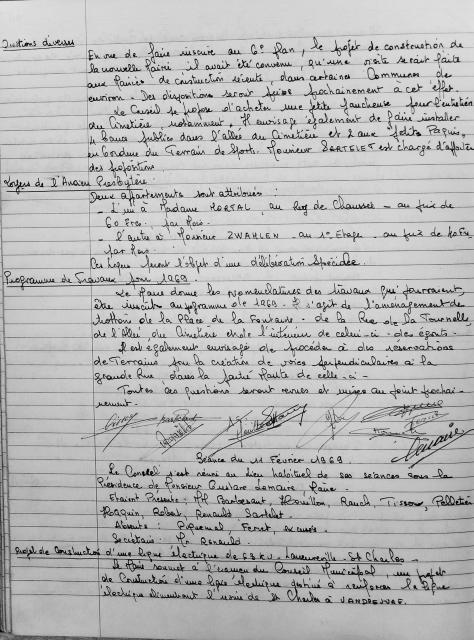 Questions diverses
En vue de faire inscrire au 6° plan, le projet de construction de
la nouvelle Mairie il avait été convenu, qu'une visite serait faite
aux Mairies de construction récente dans certaines Communes des
environ - Des dispositions seront prises prochainement à cet effet.
Le Conseil se propose d'acheter une petite faucheuse pour l'entretien
du Cimetière notamment. Il envisage également de faire installer
4 bancs publics dans l'allée du Cimetière et 2 aux petits Paquis,
en bordure du Terrain de Sports. Monsieur SARTELET est chargé d'affaires
des propositions
Loyers de l'Ancien Presbytère.
Deux appartements sont attribués :
- L'un à Madame MORTAL, au Rez de Chaussée - au prix de
60 Frs. par Mois.
- l'autre à Monsieur ZWAHLEN - au 1er Etage - au prix de
par Mois.
Ces loyers feront l'objet d'une délibération Spéciale.
Programme de Travaux pour 1969.
Le Maire donne les nomenclatures des travaux qui pourraient
être inscrits au programme de 1969. Il s'agit de l'aménagement du
de la Place de la Fontaine - de la Rue de La Tournelle
de l'Allée du Cimetière et de l'intérieur de celui-ci - des égouts.
Il est également envisagé de procéder à des réservations
de Terrains pour la création de voies perpendiculaires à la
grande Rue, dans la partie Haute de celle-ci -
Toutes ces questions seront revues et mises au point prochai-
nement.
Lemaire
Séance du 11 Février 1969.
Le Conseil s'est réuni au lieu habituel de ses séances sous la
Présidence de Monsieur Gustave Lemaire, Maire.
Etaient Présents : MM Barbesant, Rauch, Tisson, Pelletier
Robert, Renauld Sartelet.
Absents : Ferret, excusés.
Secrétaire : Mr Renauld.
Projet de Construction d'une ligne électrique de 63 KV - St Charles -
Le Maire soumet à l'examen du Conseil Municipal, un projet
de Construction d'une ligne électrique destiné à renforcer la ligne
électrique alimentant l'usine de St Charles à VANDRESSE.